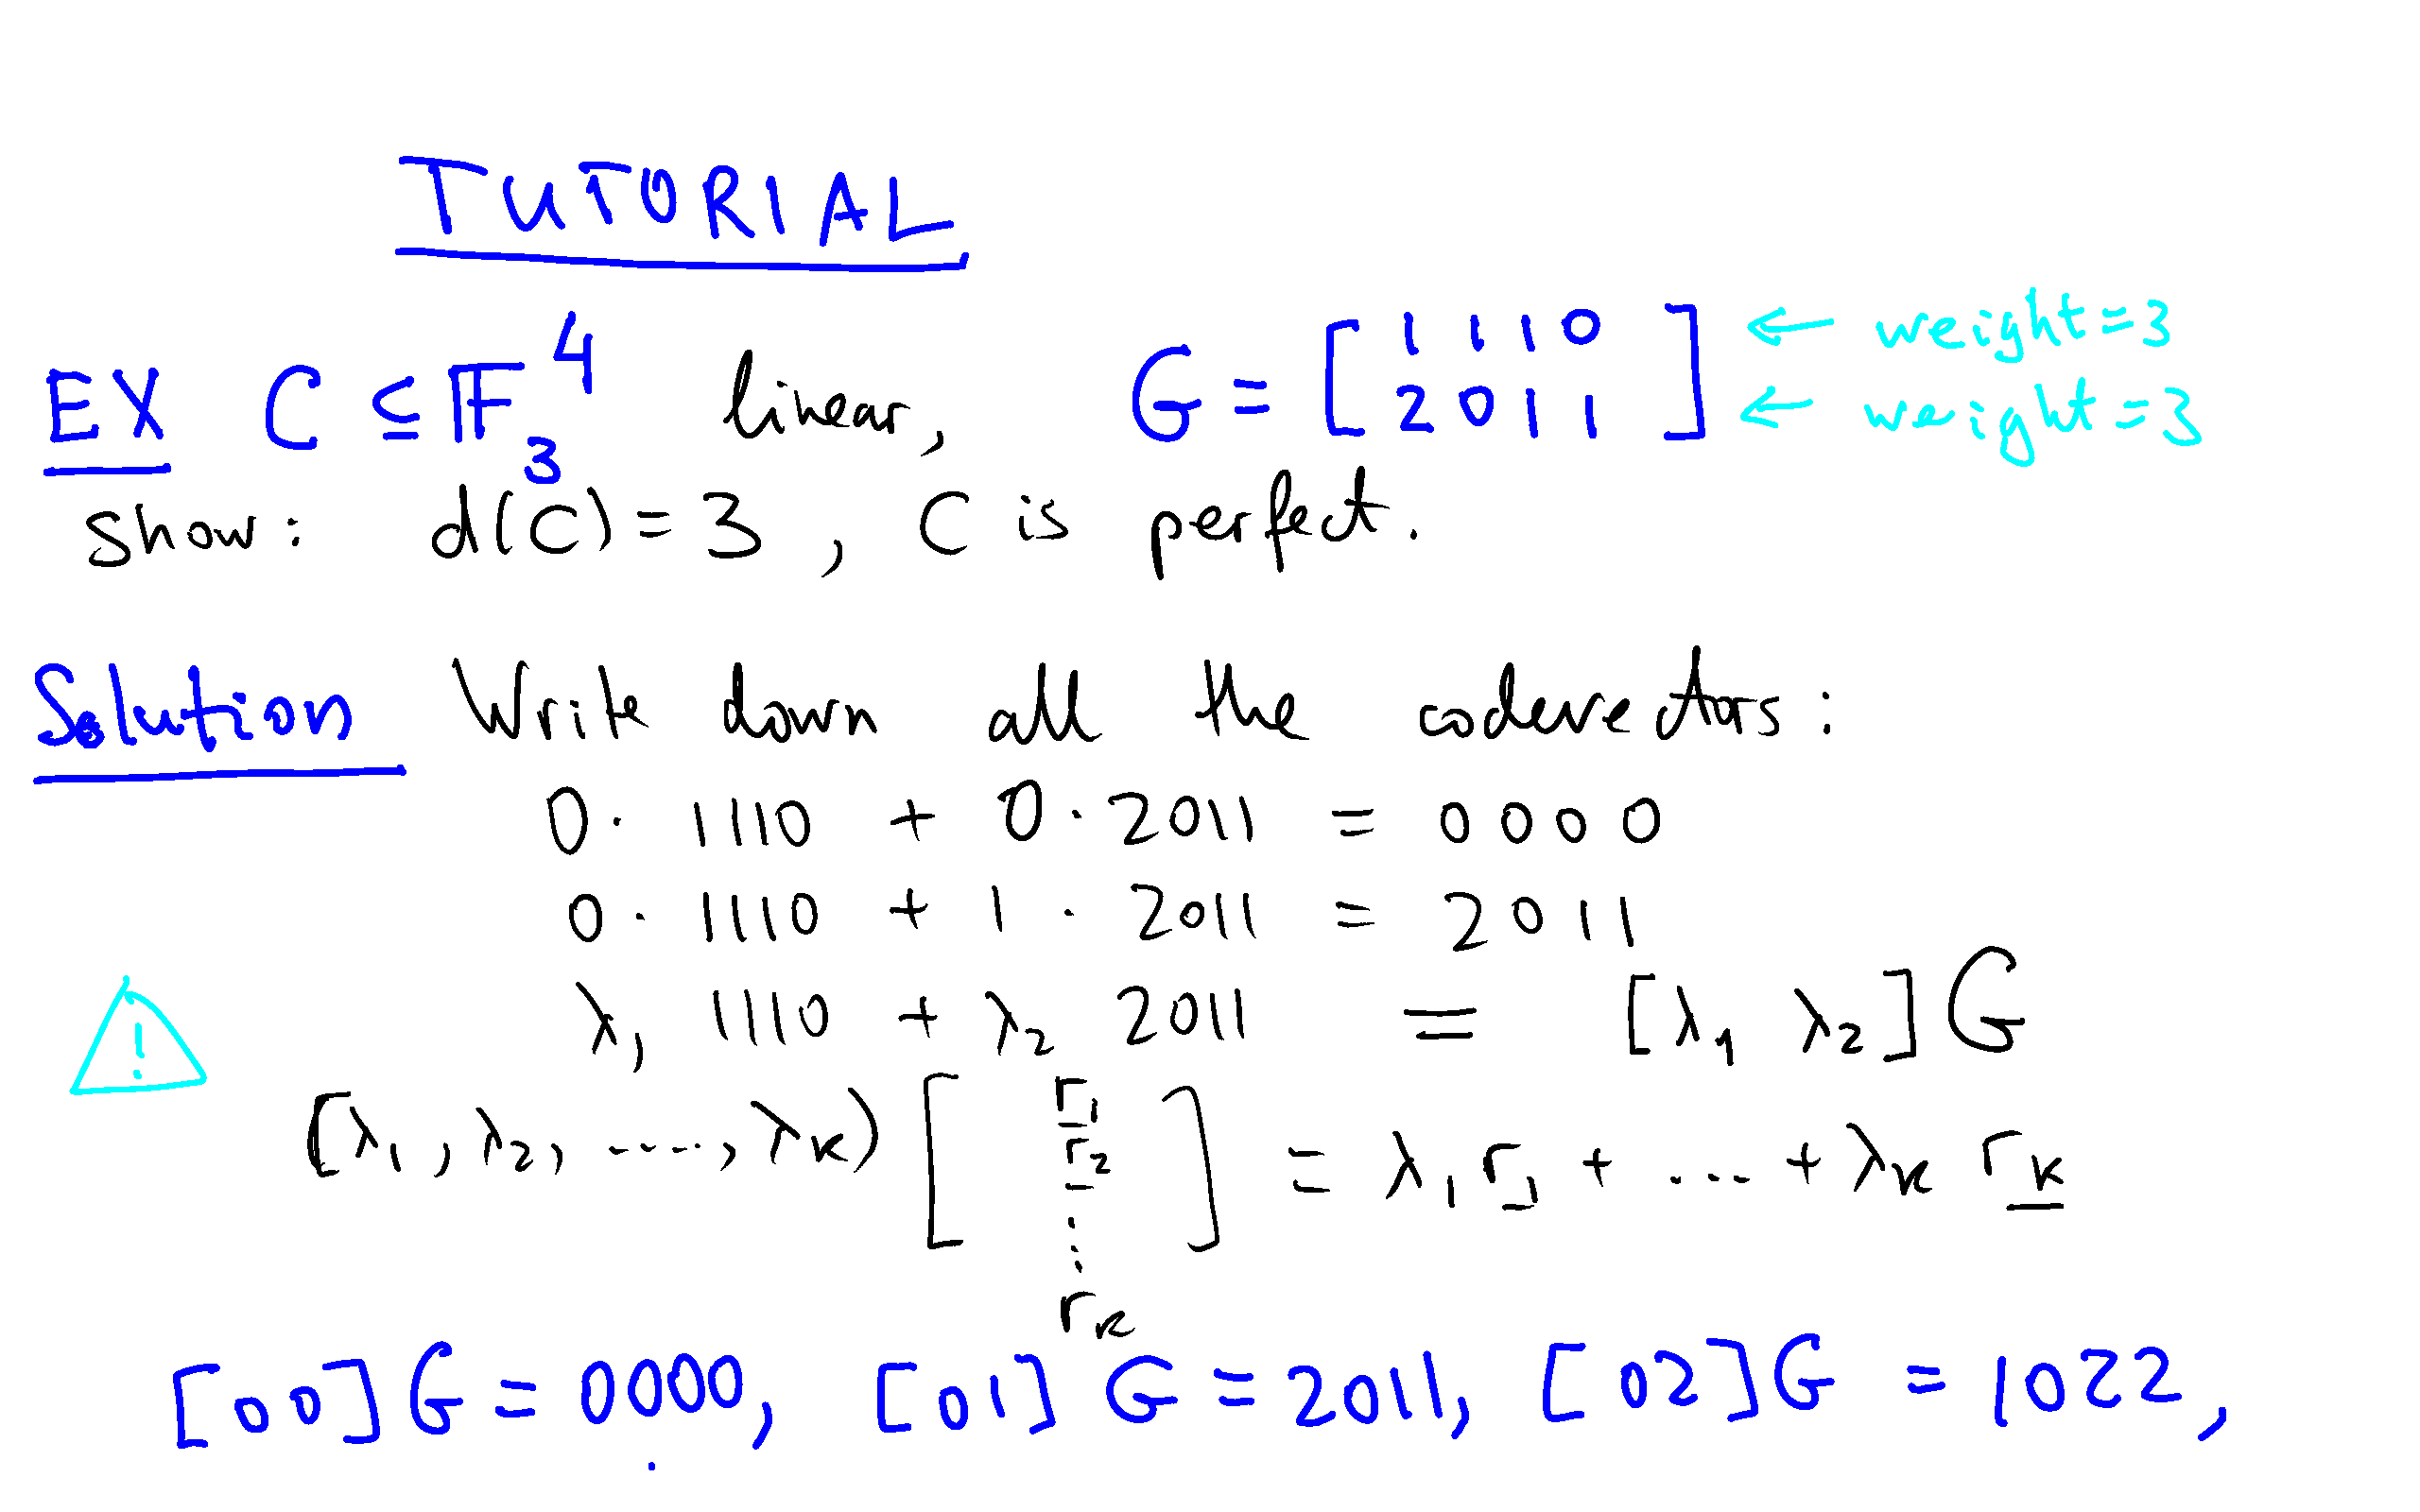 TUTORIAL
EX C ≤ 𝔽₃⁴ linear, G = [ 1110 ← weight=3
2011 ] ← weight=3
show: d(C) = 3, C is perfect.
Solution Write down all the codevectors:
0 · 1110 + 0 · 2011 = 0000
0 · 1110 + 1 · 2011 = 2011
λ₁ 1110 + λ₂ 2011 = [λ₁ λ₂] G
!
[λ₁, λ₂, ...., λₖ) [ r₁ r₂ ⋮ rₖ ] = λ₁ r₁ + ... + λₖ rₖ
[00] G = 0000, [01] G = 2011, [02] G = 1022,